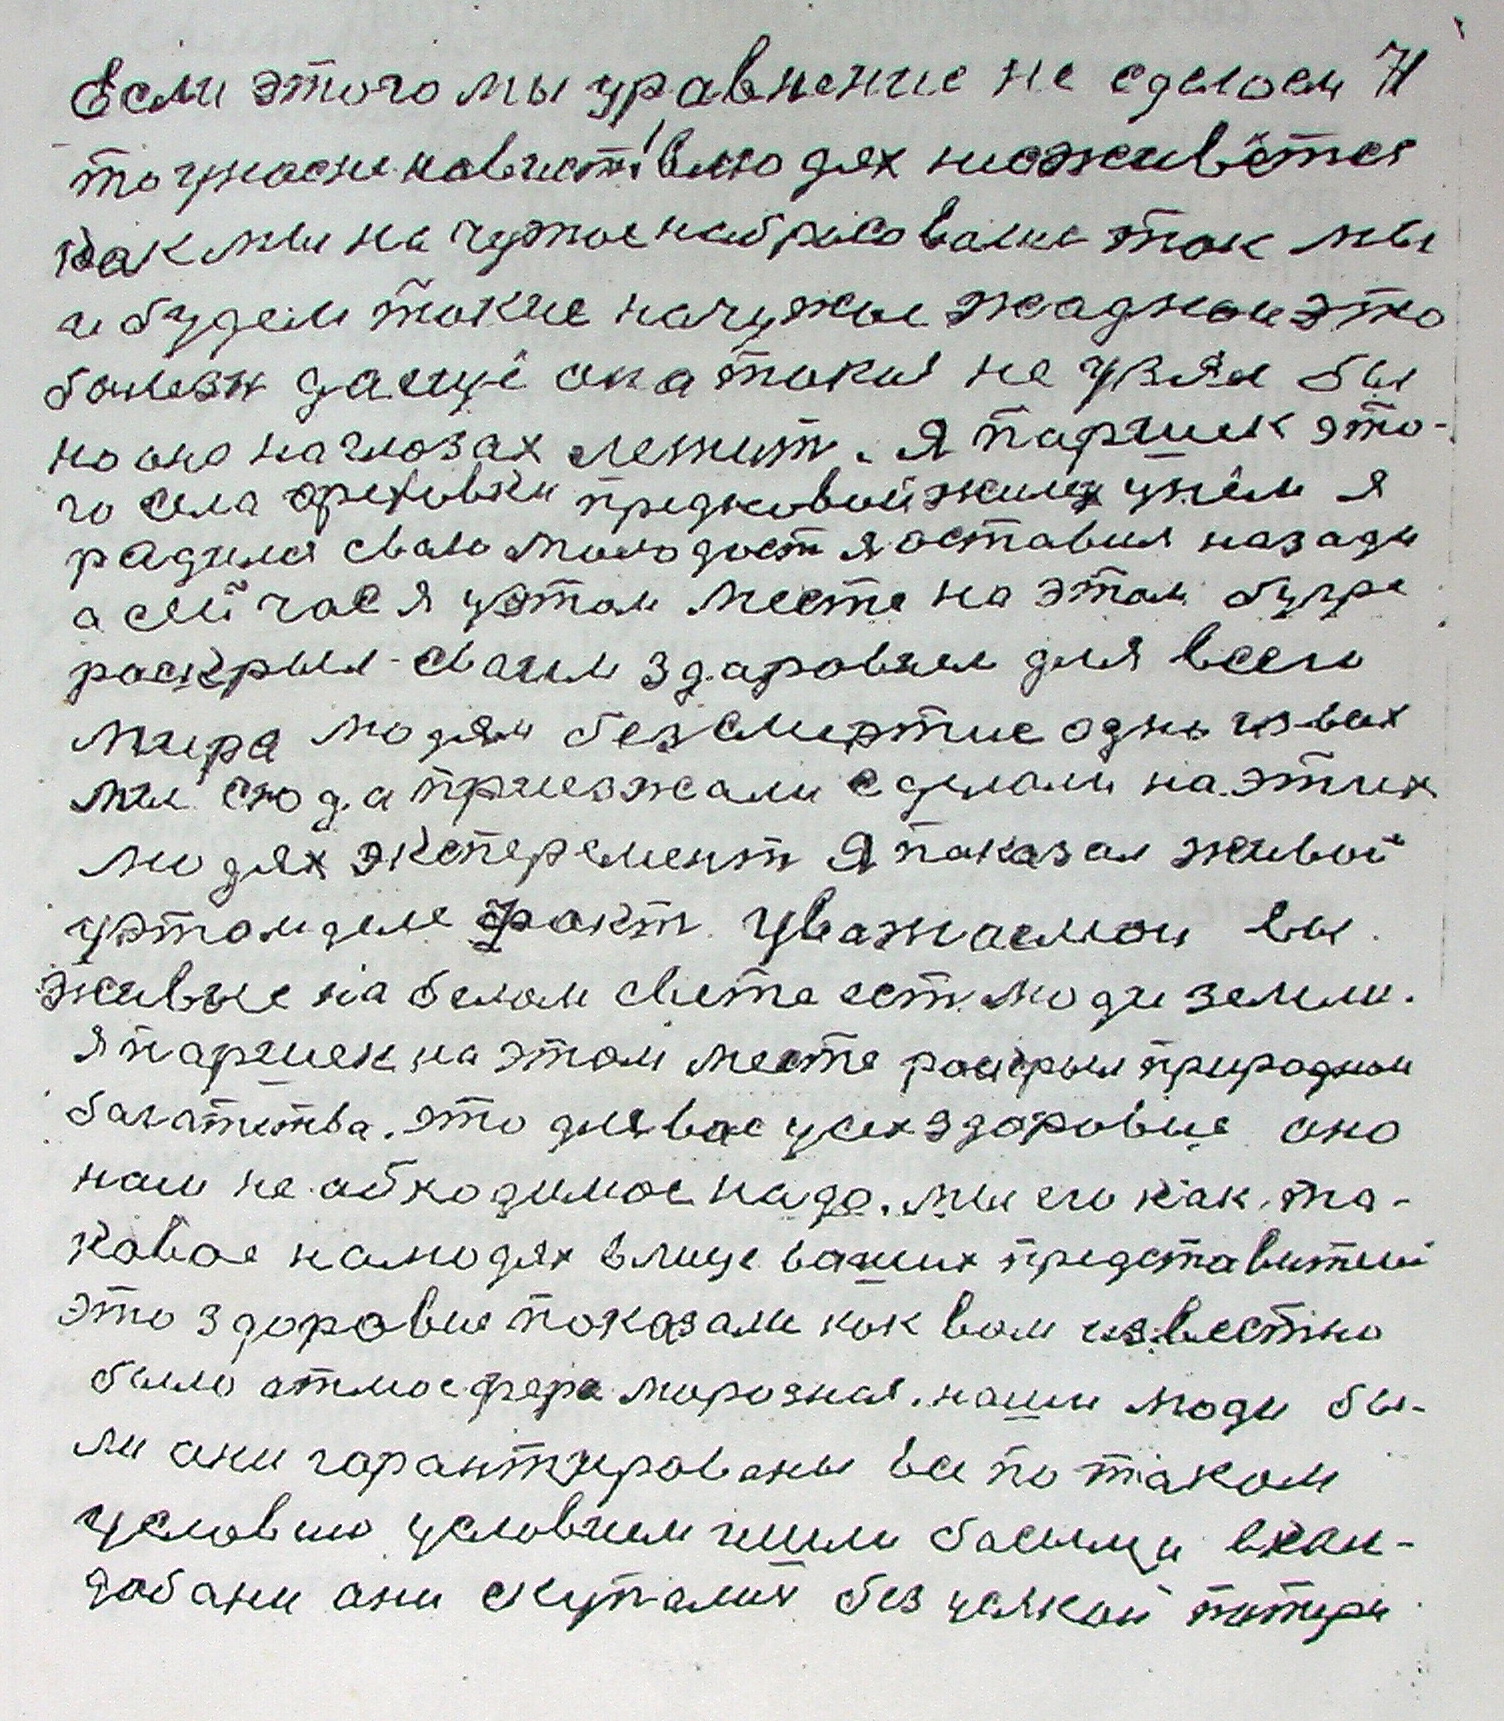 Если этого мы уравнение не сделоем И
то унас не навист в людях несживётся
как мы на чужое набрасовались так мы
и будем такие начужое жаднаи это
болезн даст её она такия не узял бы
но оно наглазах лежит. Я паршек это-
го села ореховки предковой жилец унём я
радился сваю молодост я оставил назади
а сейчас я уэтом месте на этом бугре
раскрыл сваим здаровием для всего
мира людям безсмиртие одны извах
мы сюда приезжали сделали на этих
людях эксперемент Я паказал живой
уэтом деле факт. Уважаемои вы
живые на белом свете ест люди земли.
Я паршек на этом месте раскрыл природнои
багатства. это для вас усех здоровие оно
нам не абходимое надо. мы его как та-
ковое налюдях влице ваших представителей
это здоровие показали как вам известно
было атмосфера марозная. наши люди бы-
ли они гарантированы все по таком
условию условием шли басыми в
они скупалис без усякой потери